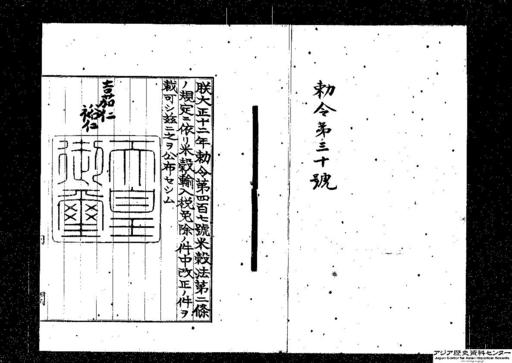 勅令第三十號
朕大正十二年勅令第四百七號米穀法第二條
ノ規定ニ依リ米穀輸入税免除ノ件中改正ノ件ヲ
裁可シ玆ニ之ヲ公布セシム
嘉仁
裕仁
天皇
御璽
アジア歴史資料センター
Japan Center for Asian Historical Records